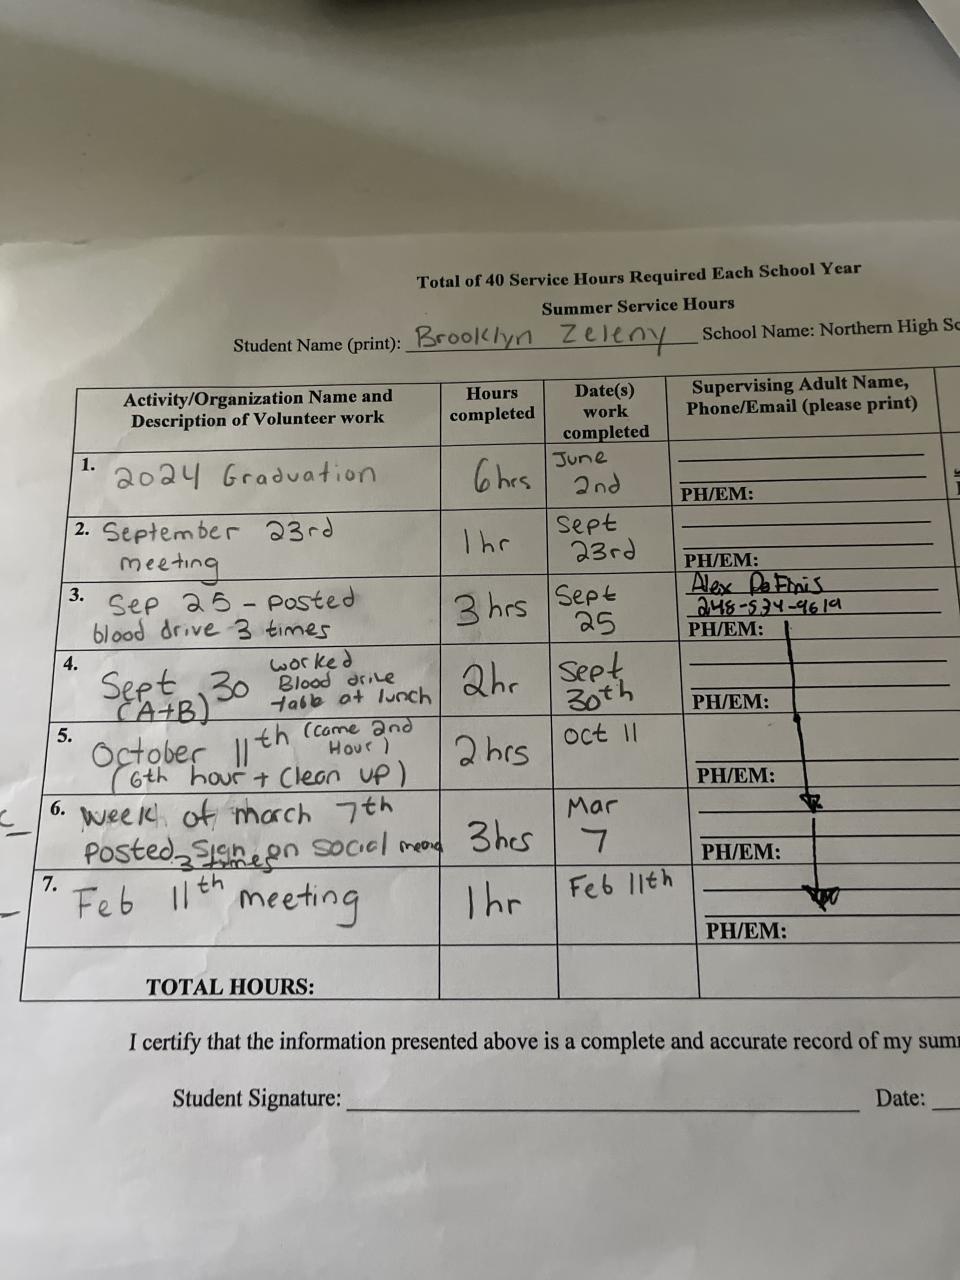 Total of 40 Service Hours Required Each School Year
Summer Service Hours
Student Name (print): Brooklyn Zeleny School Name: Northern High Sc
Activity/Organization Name and
Description of Volunteer work
Hours
completed
Date(s)
work
completed
Supervising Adult Name,
Phone/Email (please print)
1. 2024 Graduation
6 hrs
June
2nd
PH/EM:
2. September 23rd
meeting
1 hr
Sept
23rd
PH/EM:
3. Sep 25 - Posted
blood drive 3 times
3 hrs
Sept
25
Alex
248-534-9619
PH/EM:
4. Sept 30
(A+B)
worked
Blood drive
table at lunch
2hr
Sept
30th
PH/EM:
5. October 11th (came 2nd
Hour)
(6th hour + clean up)
2 hrs
Oct 11
PH/EM:
6. week of march 7th
Posted sign on social media
3 times
3hrs
Mar
7
PH/EM:
7. Feb 11th meeting
1 hr
Feb 11th
PH/EM:
TOTAL HOURS:
I certify that the information presented above is a complete and accurate record of my sum
Student Signature:
Date: